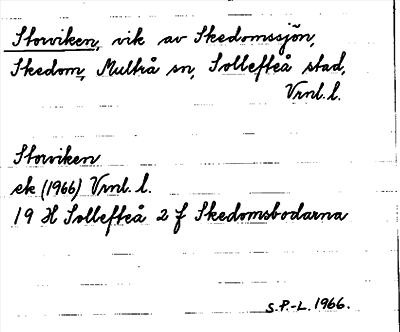 Storviken, vik av Skedomssjön,
Skedom, Multrå sn, Sollefteå stad,
Vrnl. l.
Storviken
ek (1966) Vrnl. l.
19 H Sollefteå 2 f Skedomsbodarna
S.P.-L. 1966.